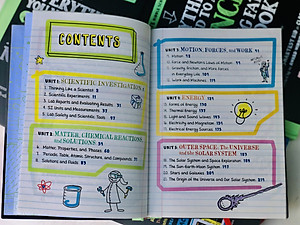 CONTENTS
UNIT 1: SCIENTIFIC INVESTIGATION 1
1. Thinking Like a Scientist 2
2. Scientific Experiments 11
3. Lab Reports and Evaluating Results 21
4. SI Units and Measurements 31
5. Lab Safety and Scientific Tools
UNIT 2: MATTER, CHEMICAL REACTIONS
AND SOLUTIONS 59
6. Matter, Properties, and Phases 60
7. Periodic Table, Atomic Structure, and Compounds 71
8. Solutions and Fluids
UNIT 3: MOTION, FORCES, AND WORK 91
9. Motion
10. Force and Newton's Laws of Motion
11. Gravity, Friction, and More Forces
in Everyday Life
12. Work and Machines
UNIT 4: ENERGY
13. Forms of Energy
14. Thermal Energy
15. Light and Sound Waves
16. Electricity and Magnetism
17. Electrical Energy Sources
UNIT 5: OUTER SPACE: THE UNIVERSE
and the SOLAR SYSTEM
18. The Solar System and Space Exploration
19. The Sun-Earth-Moon System
20. Stars and Galaxies
21. The Origin of the Universe and Our Solar System